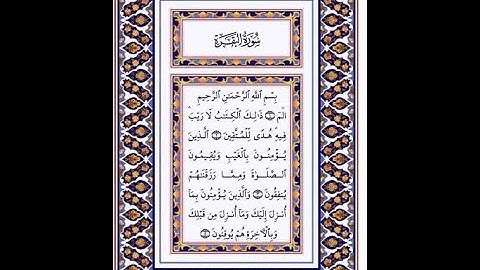 سُورَةُ البَقَرَةِ
بِسْمِ اللَّهِ الرَّحْمَٰنِ الرَّحِيمِ
الٓمٓ ۝١ ذَٰلِكَ الْكِتَٰبُ لَا رَيْبَ
فِيهِ هُدًى لِّلْمُتَّقِينَ ۝٢ الَّذِينَ
يُؤْمِنُونَ بِالْغَيْبِ وَيُقِيمُونَ
الصَّلَوٰةَ وَمِمَّا رَزَقْنَٰهُمْ
يُنفِقُونَ ۝٣ وَالَّذِينَ يُؤْمِنُونَ بِمَا
أُنزِلَ إِلَيْكَ وَمَا أُنزِلَ مِن قَبْلِكَ
وَبِالْأَخِرَةِ هُمْ يُوقِنُونَ ۝٤